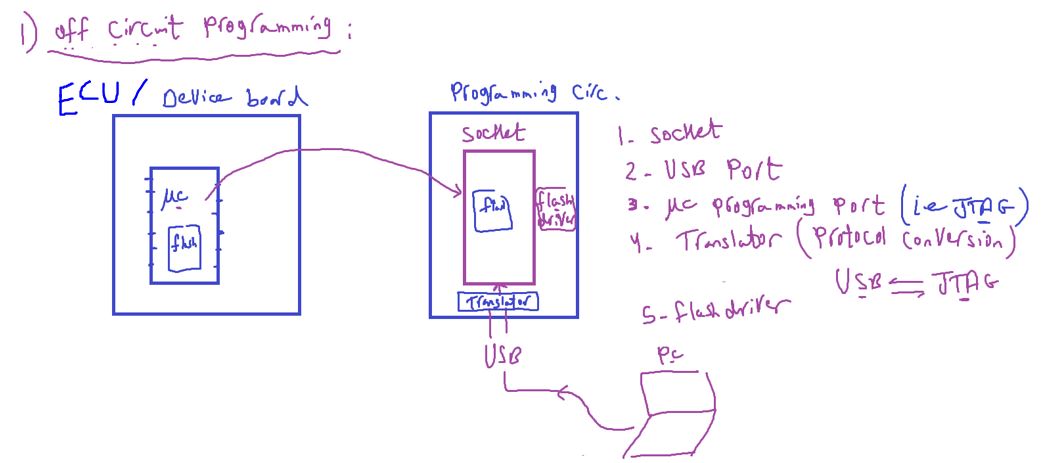 1) off circuit programming :
ECU / Device board
Programming Circ.
socket
μc
flash
flash
flash driver
Translator
USB
PC
1- socket
2- USB Port
3- μc programming port (i.e JTAG)
4- Translator (Protocol Conversion)
USB ⇌ JTAG
5- flash driver